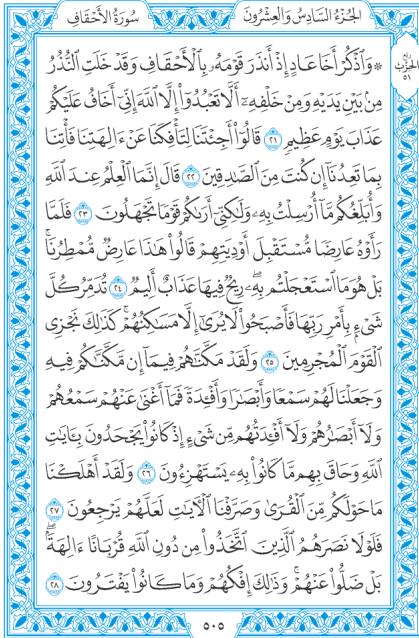 الجُزْءُ السَّادِسُ وَالعِشْرُونَ
سُورَةُ الأَحْقَافِ
۞ وَٱذْكُرْ أَخَا عَادٍ إِذْ أَنذَرَ قَوْمَهُۥ بِٱلْأَحْقَافِ وَقَدْ خَلَتِ ٱلنُّذُرُ
مِنۢ بَيْنِ يَدَيْهِ وَمِنْ خَلْفِهِۦٓ أَلَّا تَعْبُدُوٓا۟ إِلَّا ٱللَّهَ إِنِّىٓ أَخَافُ عَلَيْكُمْ
عَذَابَ يَوْمٍ عَظِيمٍ ٢١ قَالُوٓا۟ أَجِئْتَنَا لِتَأْفِكَنَا عَنْ ءَالِهَتِنَا فَأْتِنَا
بِمَا تَعِدُنَآ إِن كُنتَ مِنَ ٱلصَّٰدِقِينَ ٢٢ قَالَ إِنَّمَا ٱلْعِلْمُ عِندَ ٱللَّهِ
وَأُبَلِّغُكُم مَّآ أُرْسِلْتُ بِهِۦ وَلَٰكِنِّىٓ أَرَىٰكُمْ قَوْمًا تَجْهَلُونَ ٢٣ فَلَمَّا
رَأَوْهُ عَارِضًا مُّسْتَقْبِلَ أَوْدِيَتِهِمْ قَالُوا۟ هَٰذَا عَارِضٌ مُّمْطِرُنَا ۚ
بَلْ هُوَ مَا ٱسْتَعْجَلْتُم بِهِۦ ۖ رِيحٌ فِيهَا عَذَابٌ أَلِيمٌ ٢٤ تُدَمِّرُ كُلَّ
شَىْءٍۭ بِأَمْرِ رَبِّهَا فَأَصْبَحُوا۟ لَا يُرَىٰٓ إِلَّا مَسَٰكِنُهُمْ ۚ كَذَٰلِكَ نَجْزِى
ٱلْقَوْمَ ٱلْمُجْرِمِينَ ٢٥ وَلَقَدْ مَكَّنَّٰهُمْ فِيمَآ إِن مَّكَّنَّٰكُمْ فِيهِ
وَجَعَلْنَا لَهُمْ سَمْعًا وَأَبْصَٰرًا وَأَفْـِٔدَةً فَمَآ أَغْنَىٰ عَنْهُمْ سَمْعُهُمْ
وَلَآ أَبْصَٰرُهُمْ وَلَآ أَفْـِٔدَتُهُم مِّن شَىْءٍ إِذْ كَانُوا۟ يَجْحَدُونَ بِـَٔايَٰتِ
ٱللَّهِ وَحَاقَ بِهِم مَّا كَانُوا۟ بِهِۦ يَسْتَهْزِءُونَ ٢٦ وَلَقَدْ أَهْلَكْنَا
مَا حَوْلَكُم مِّنَ ٱلْقُرَىٰ وَصَرَّفْنَا ٱلْـَٔايَٰتِ لَعَلَّهُمْ يَرْجِعُونَ ٢٧
فَلَوْلَا نَصَرَهُمُ ٱلَّذِينَ ٱتَّخَذُوا۟ مِن دُونِ ٱللَّهِ قُرْبَانًا ءَالِهَةًۢ ۖ
بَلْ ضَلُّوا۟ عَنْهُمْ ۚ وَذَٰلِكَ إِفْكُهُمْ وَمَا كَانُوا۟ يَفْتَرُونَ ٢٨
٥٠٥